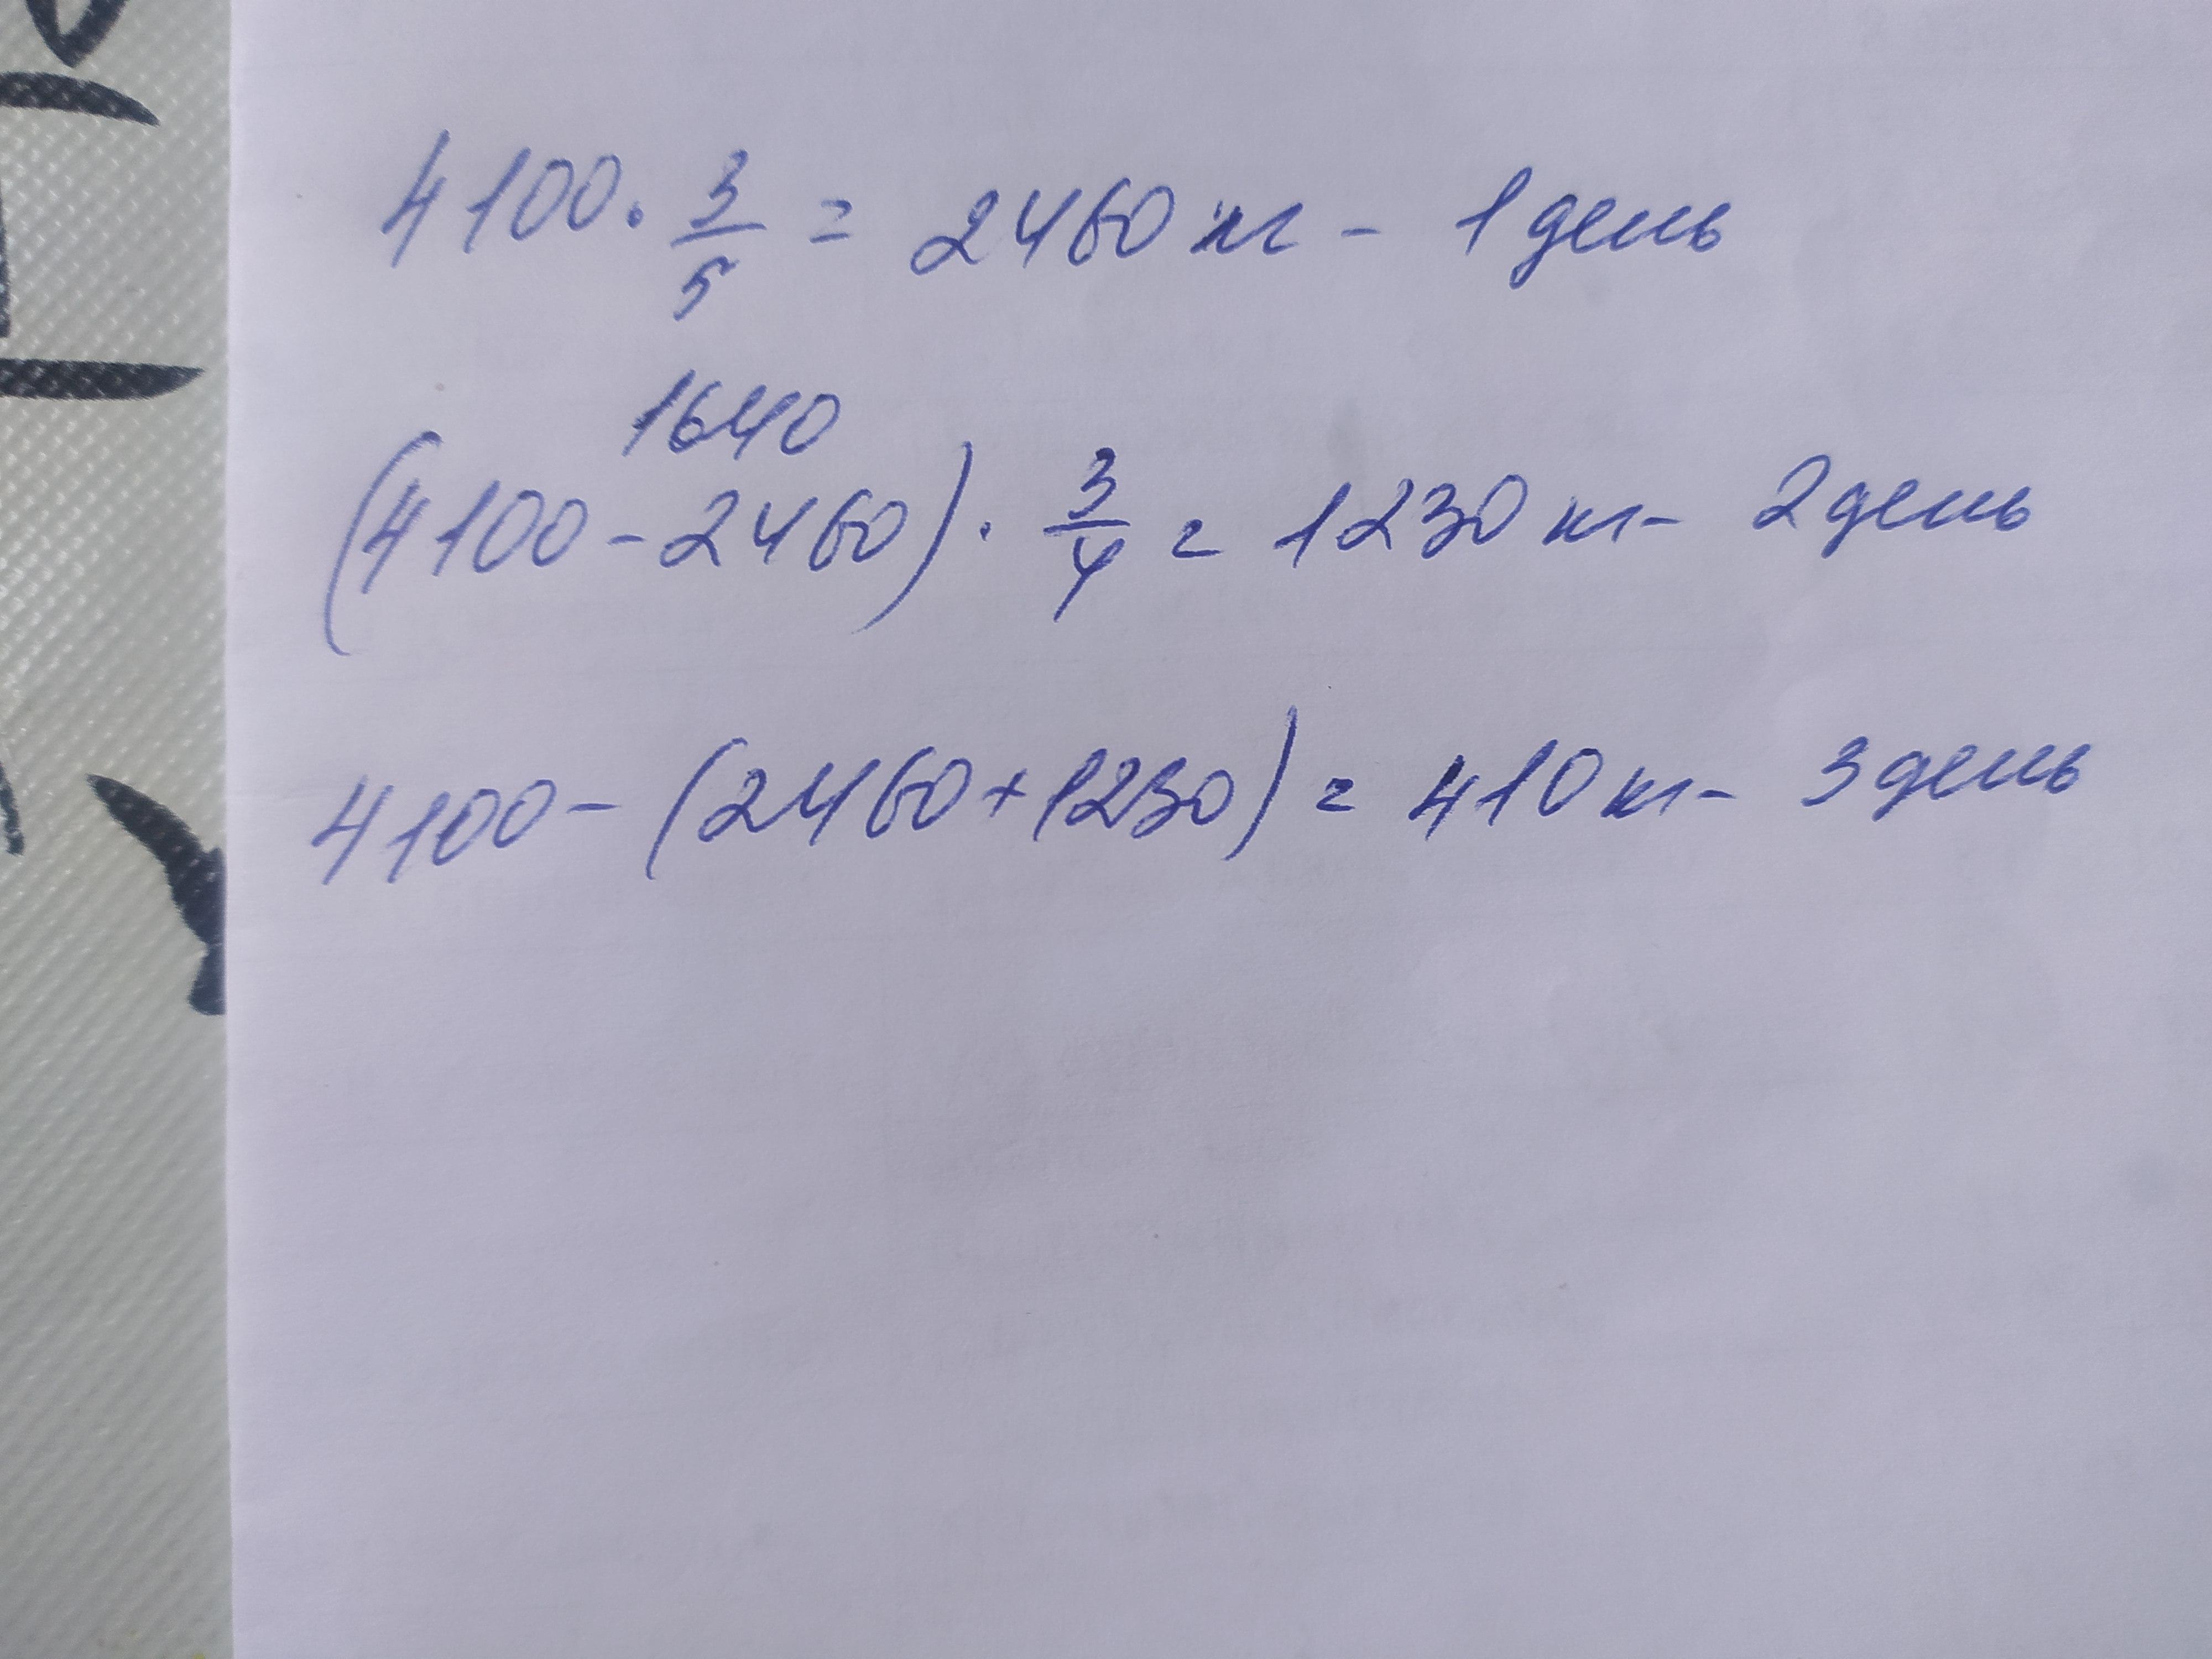 4100 · 3/5 = 2460 кг - 1 день
1640
(4100 - 2460) · 3/4 = 1230 кг - 2 день
4100 - (2460 + 1230) = 410 кг - 3 день